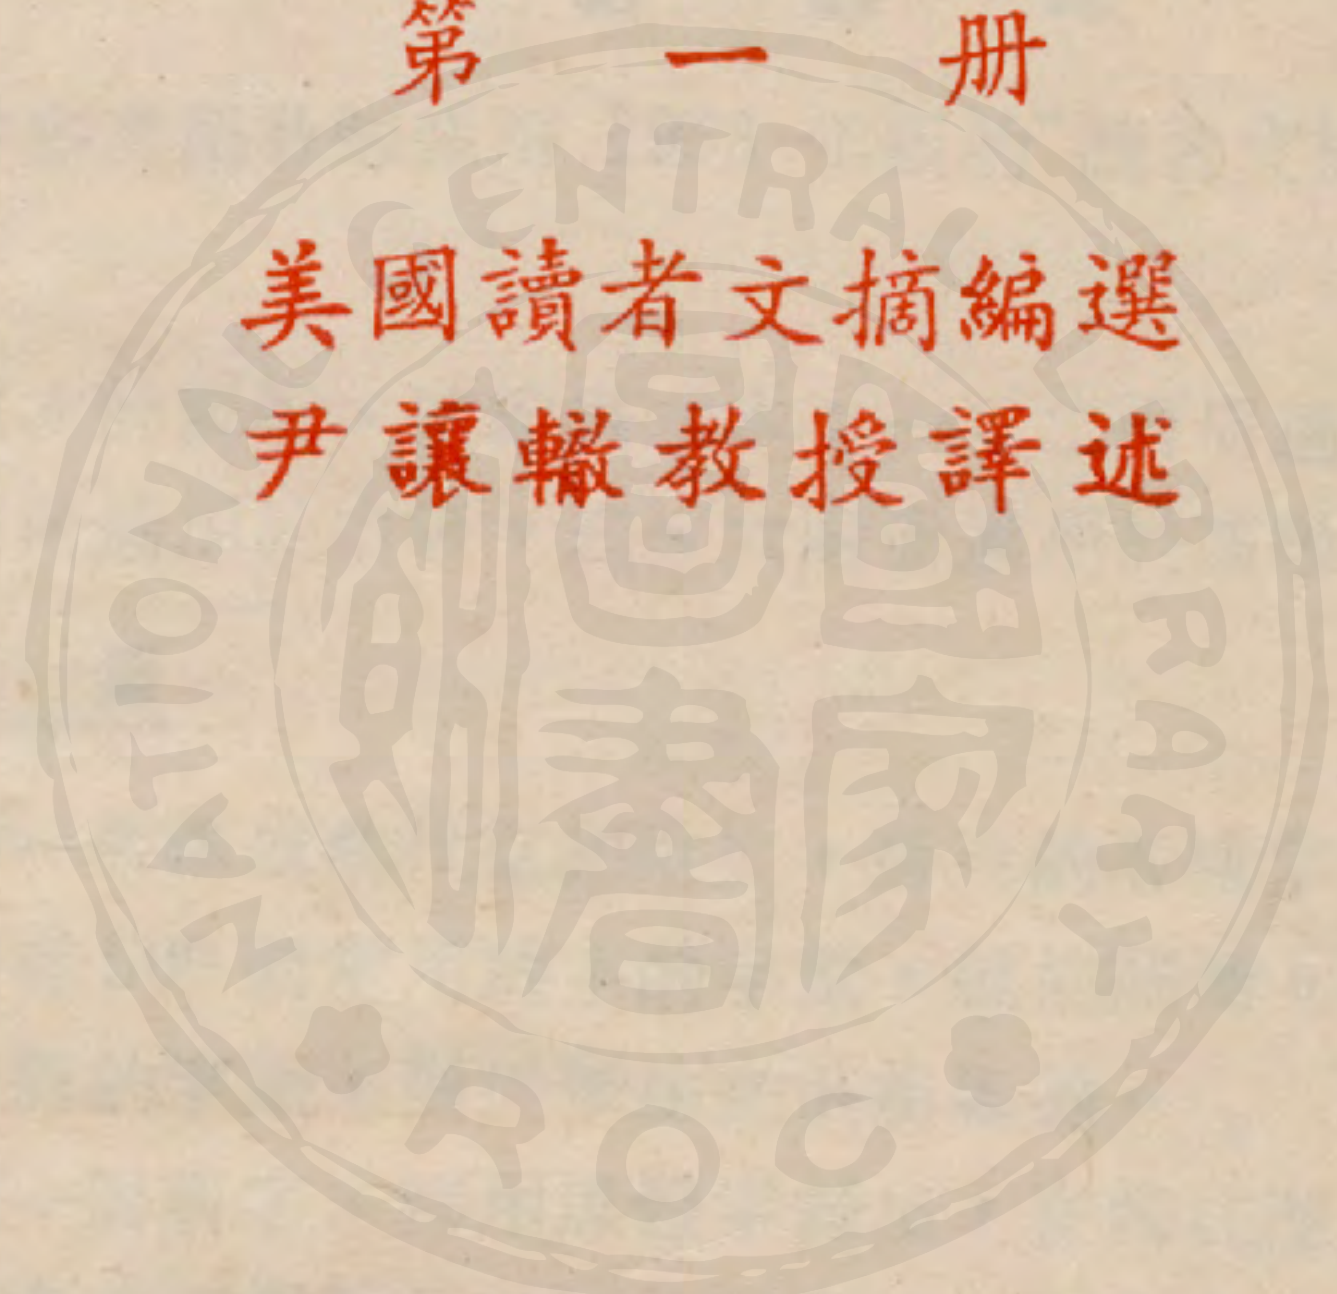 第一册
美國讀者文摘編選
尹讓轍教授譯述
NATIONAL CENTRAL LIBRARY
國家圖書館
ROC